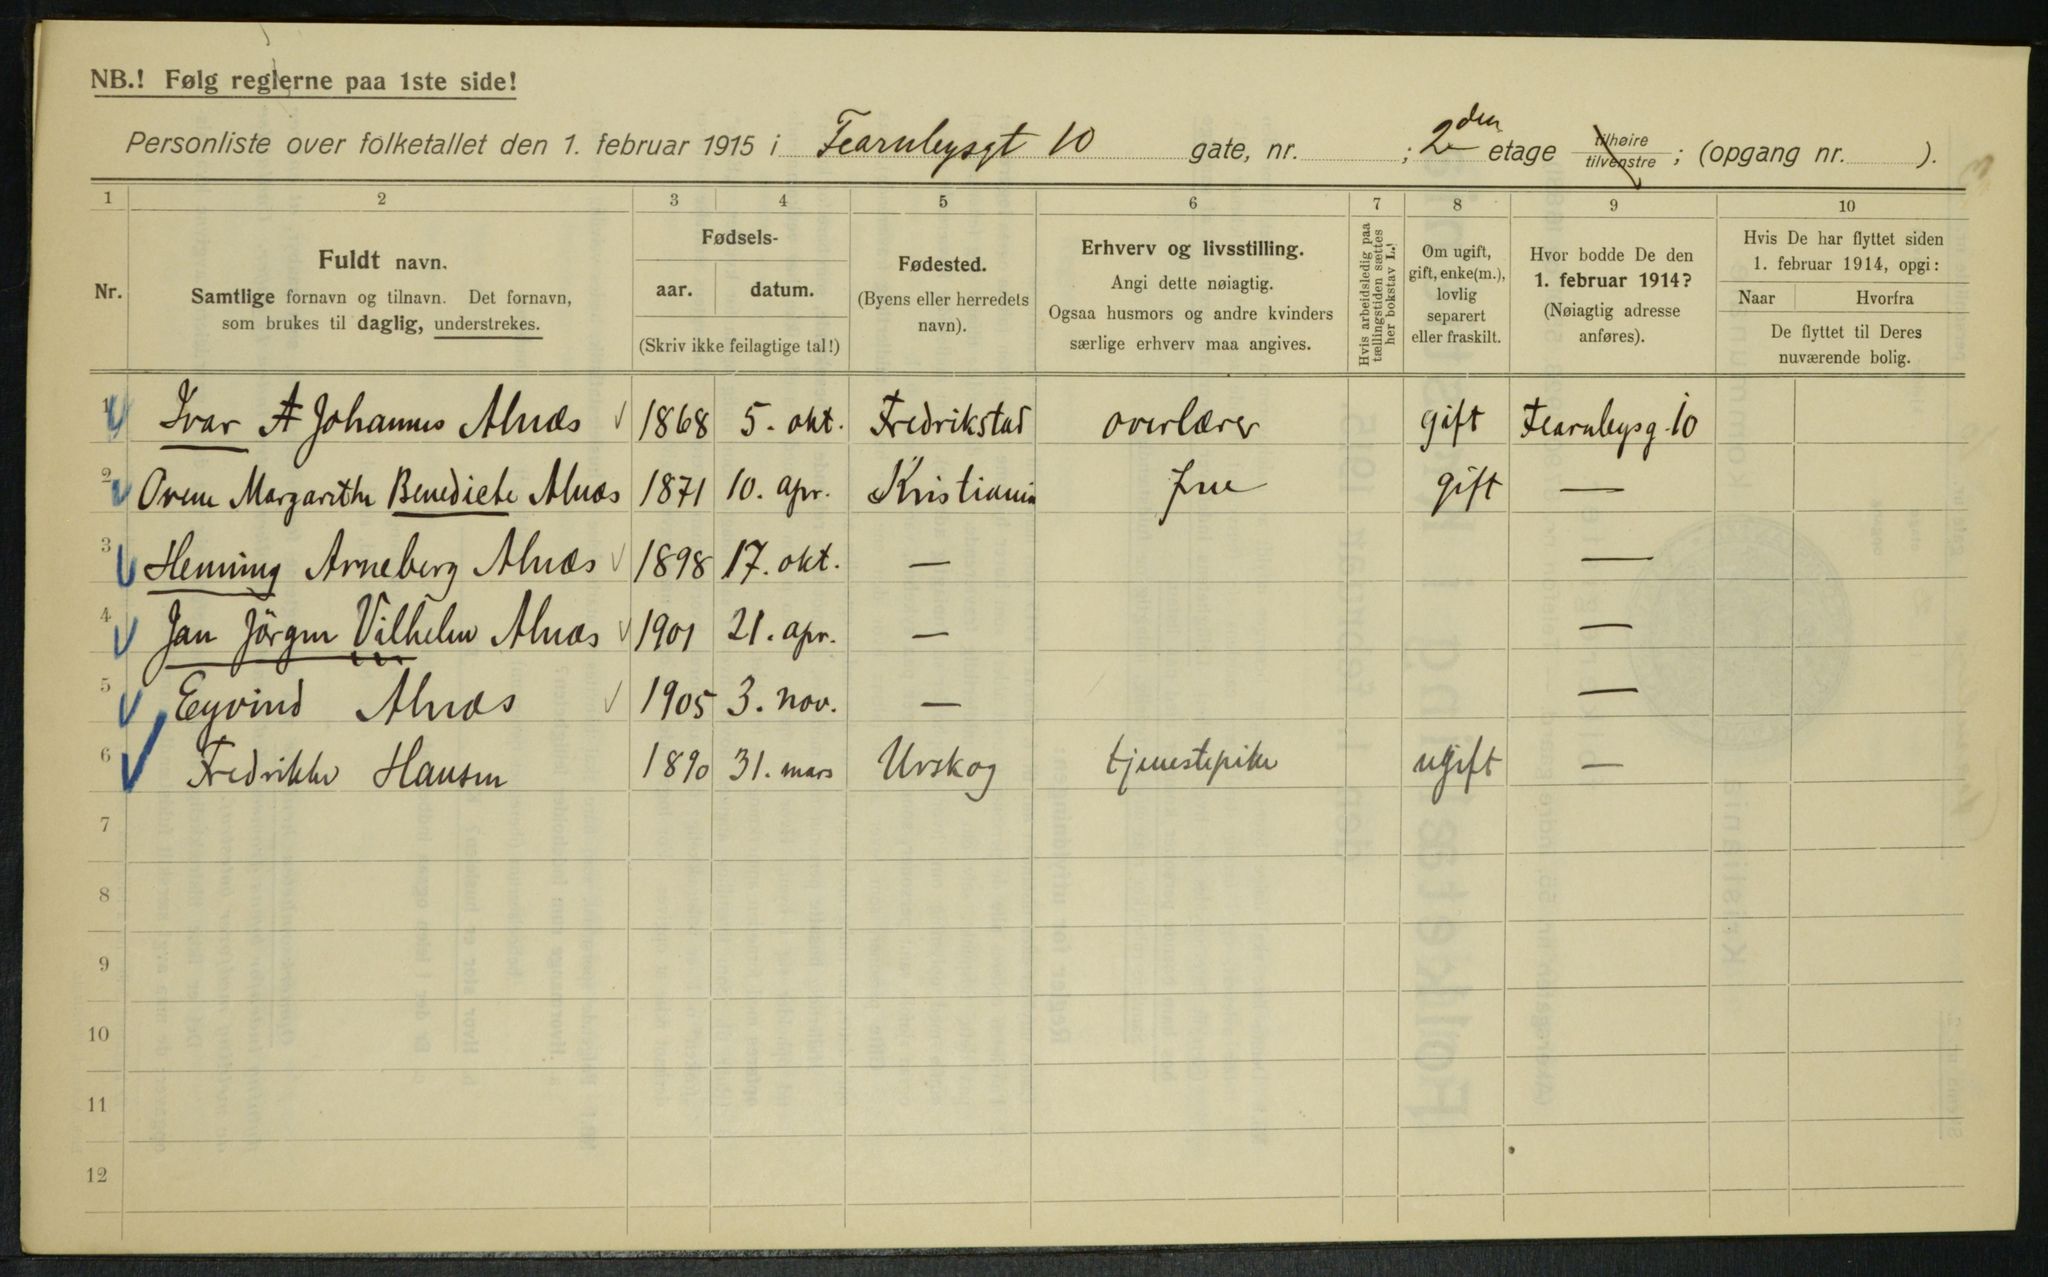 NB.! Følg reglerne paa 1ste side!
Personliste over folketallet den 1. februar 1915 i Fearnleysgt 10 gate, nr. ; 2den etage tilhøire tilvenstre ; (opgang nr. ).
1 2 3 4 5 6 7 8 9 10
Nr.
Fuldt navn.
Samtlige fornavn og tilnavn. Det fornavn,
som brukes til daglig, understrekes.
Fødsels-
aar. datum.
(Skriv ikke feilagtige tal!)
Fødested.
(Byens eller herredets
navn).
Erhverv og livsstilling.
Angi dette nøiagtig.
Ogsaa husmors og andre kvinders
særlige erhverv maa angives.
Hvis arbeidsledig paa
tællingstiden sættes
her bokstav L.!
Om ugift,
gift, enke(m.),
lovlig
separert
eller fraskilt.
Hvor bodde De den
1. februar 1914?
(Nøiagtig adresse
anføres).
Hvis De har flyttet siden
1. februar 1914, opgi:
Naar Hvorfra
De flyttet til Deres
nuværende bolig.
1 Ivar A Johannes Alnæs 1868 5. okt. Fredrikstad overlærer gift Fearnleysg. 10
2 Margarethe Benedicte Alnæs 1871 10. apr. Kristiania frue gift —
3 Henning Arneberg Alnæs 1898 17. okt. — —
4 Jan Jörgen Vilhelm Alnæs 1901 21. apr. — —
5 Eyvind Alnæs 1905 3. nov. — —
6 Fredrikke Hansen 1890 31. mars Urskog tjenestepike ugift —
7
8
9
10
11
12